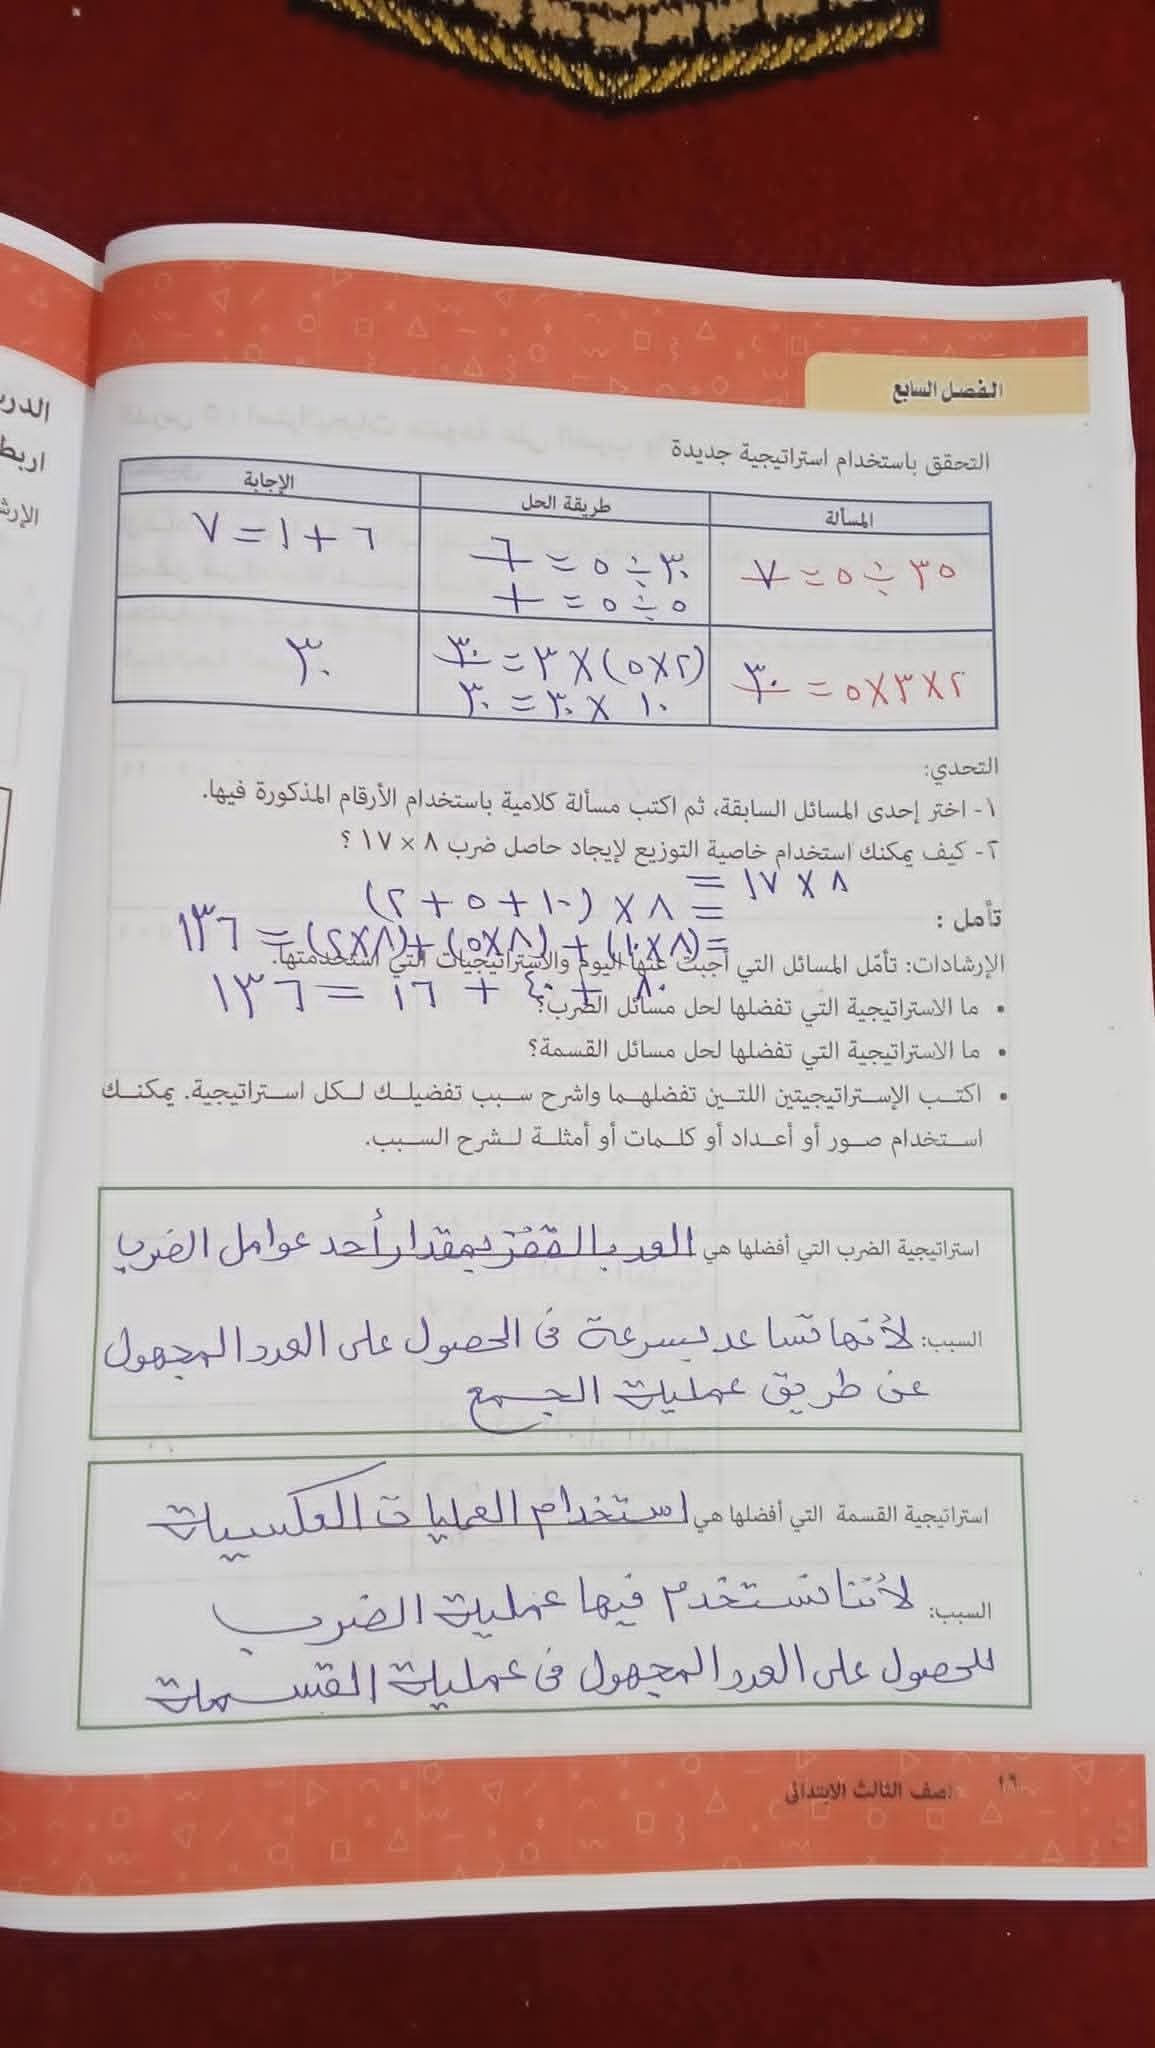 الفصل السابع
التحقق باستخدام استراتيجية جديدة
المسألة طريقة الحل الإجابة
٣٥ ÷ ٥ = ٧
٣٠ ÷ ٥ = ٦
٥ ÷ ٥ = ١
٦ + ١ = ٧
٢ × ٣ × ٥ = ٣٠
(٢ × ٥) × ٣ = ٣٠
١٠ × ٣٠ = ٣٠
٣٠
التحدي:
١- اختر إحدى المسائل السابقة، ثم اكتب مسألة كلامية باستخدام الأرقام المذكورة فيها.
٢- كيف يمكنك استخدام خاصية التوزيع لإيجاد حاصل ضرب ٨ × ١٧ ؟
٨ × ١٧ =
= ٨ × (١٠ + ٥ + ٢)
تأمل :
= (٨ × ١٠) + (٨ × ٥) + (٨ × ٢) = ١٣٦
الإرشادات: تأمّل المسائل التي أجبت عنها اليوم والاستراتيجيات التي استخدمتها.
٨٠ + ٤٠ + ١٦ = ١٣٦
• ما الاستراتيجية التي تفضلها لحل مسائل الضرب؟
• ما الاستراتيجية التي تفضلها لحل مسائل القسمة؟
• اكتب الإستراتيجيتين اللتين تفضلهما واشرح سبب تفضيلك لكل استراتيجية. يمكنك
استخدام صور أو أعداد أو كلمات أو أمثلة لشرح السبب.
استراتيجية الضرب التي أفضلها هي العد بالقفز بمقدار أحد عوامل الضرب
السبب: لأنها تساعد بسرعة فى الحصول على العدد المجهول
عن طريق عملية الجمع
استراتيجية القسمة التي أفضلها هي استخدام العمليات العكسية
السبب: لأننا نستخدم فيها عملية الضرب
للحصول على العدد المجهول فى عملية القسمة
١٦ الصف الثالث الابتدائى